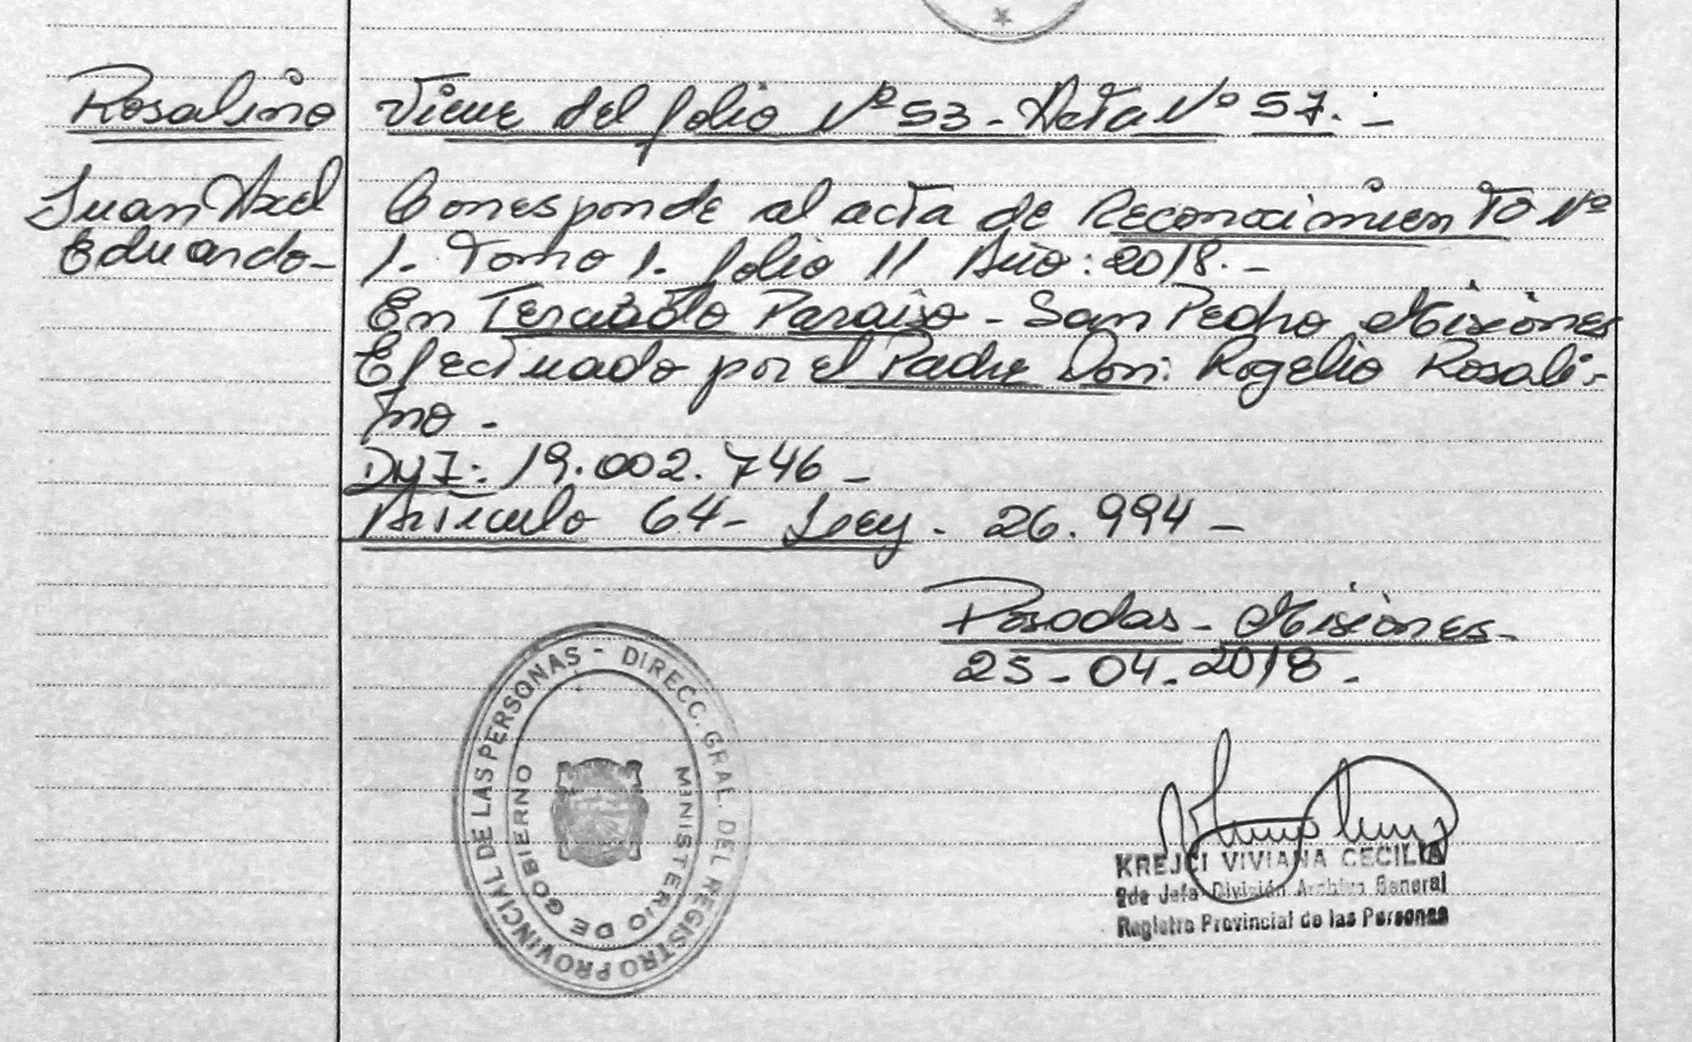 Rosalino
Juan Axel
Eduardo-
Viene del folio Nº 53 - Acta Nº 57. -
Corresponde al acta de Reconocimiento Nº
1. Tomo 1. folio 11 Año: 2018. -
En Paraíso - San Pedro Misiones
Efectuado por el Padre Don: Rogelio Rosali-
no -
DNI: 19.002.746 -
Articulo 64 - Ley - 26.994 -
Posadas - Misiones -
25 - 04 - 2018 -
DIRECC. GRAL. DEL REGISTRO PROVINCIAL DE LAS PERSONAS -
MINISTERIO DE GOBIERNO
KREJCI VIVIANA CECILIA
2da Jefa División Archivo General
Registro Provincial de las Personas